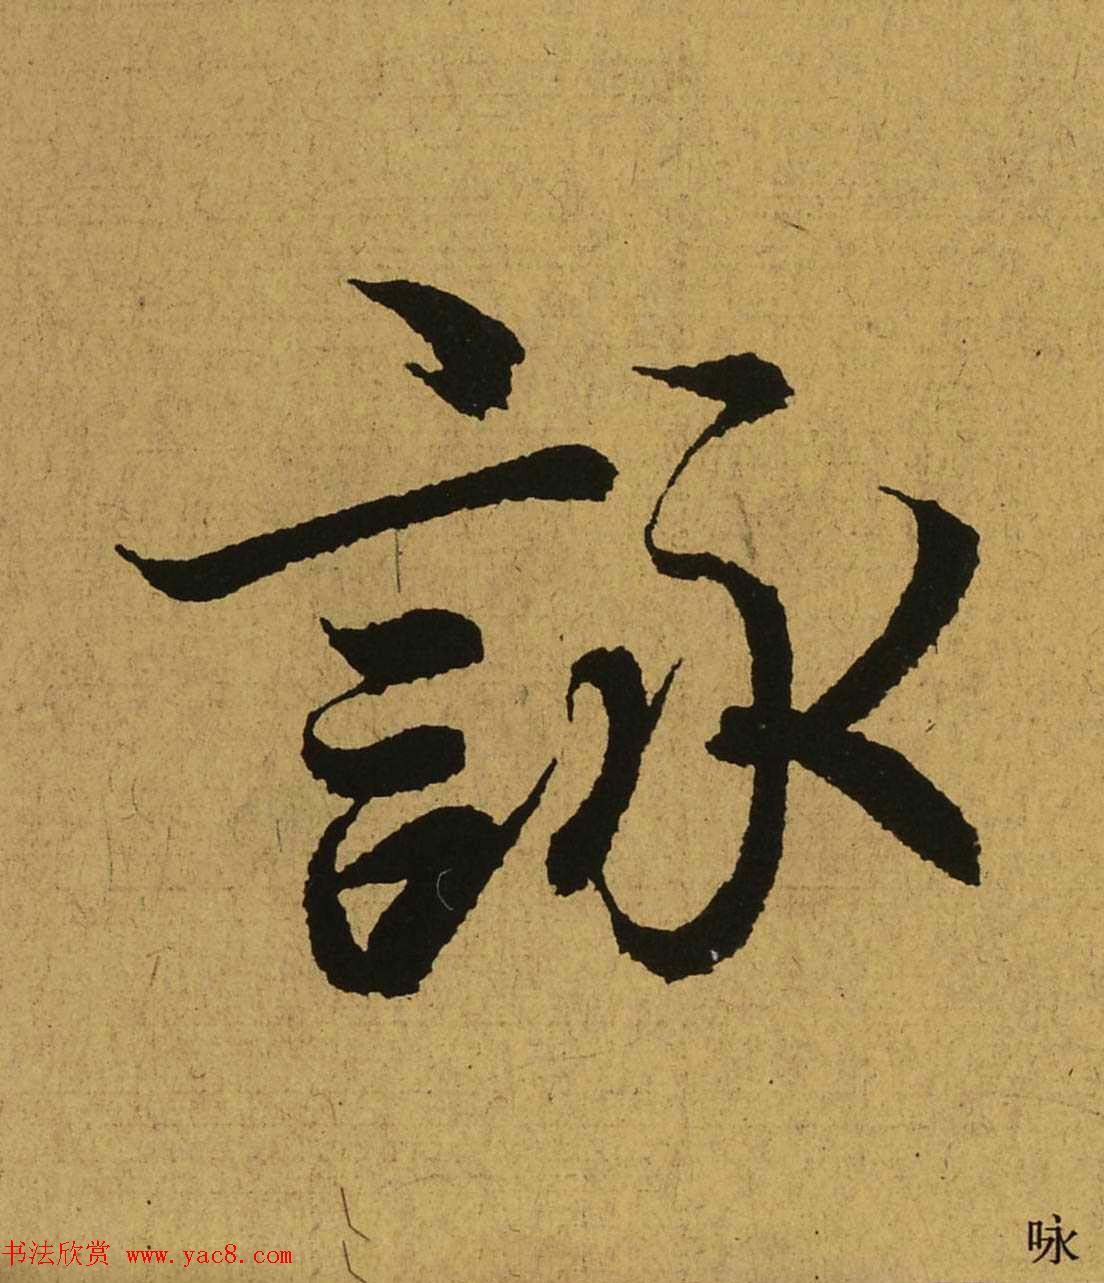 詠
书法欣赏 www.yac8.com
咏